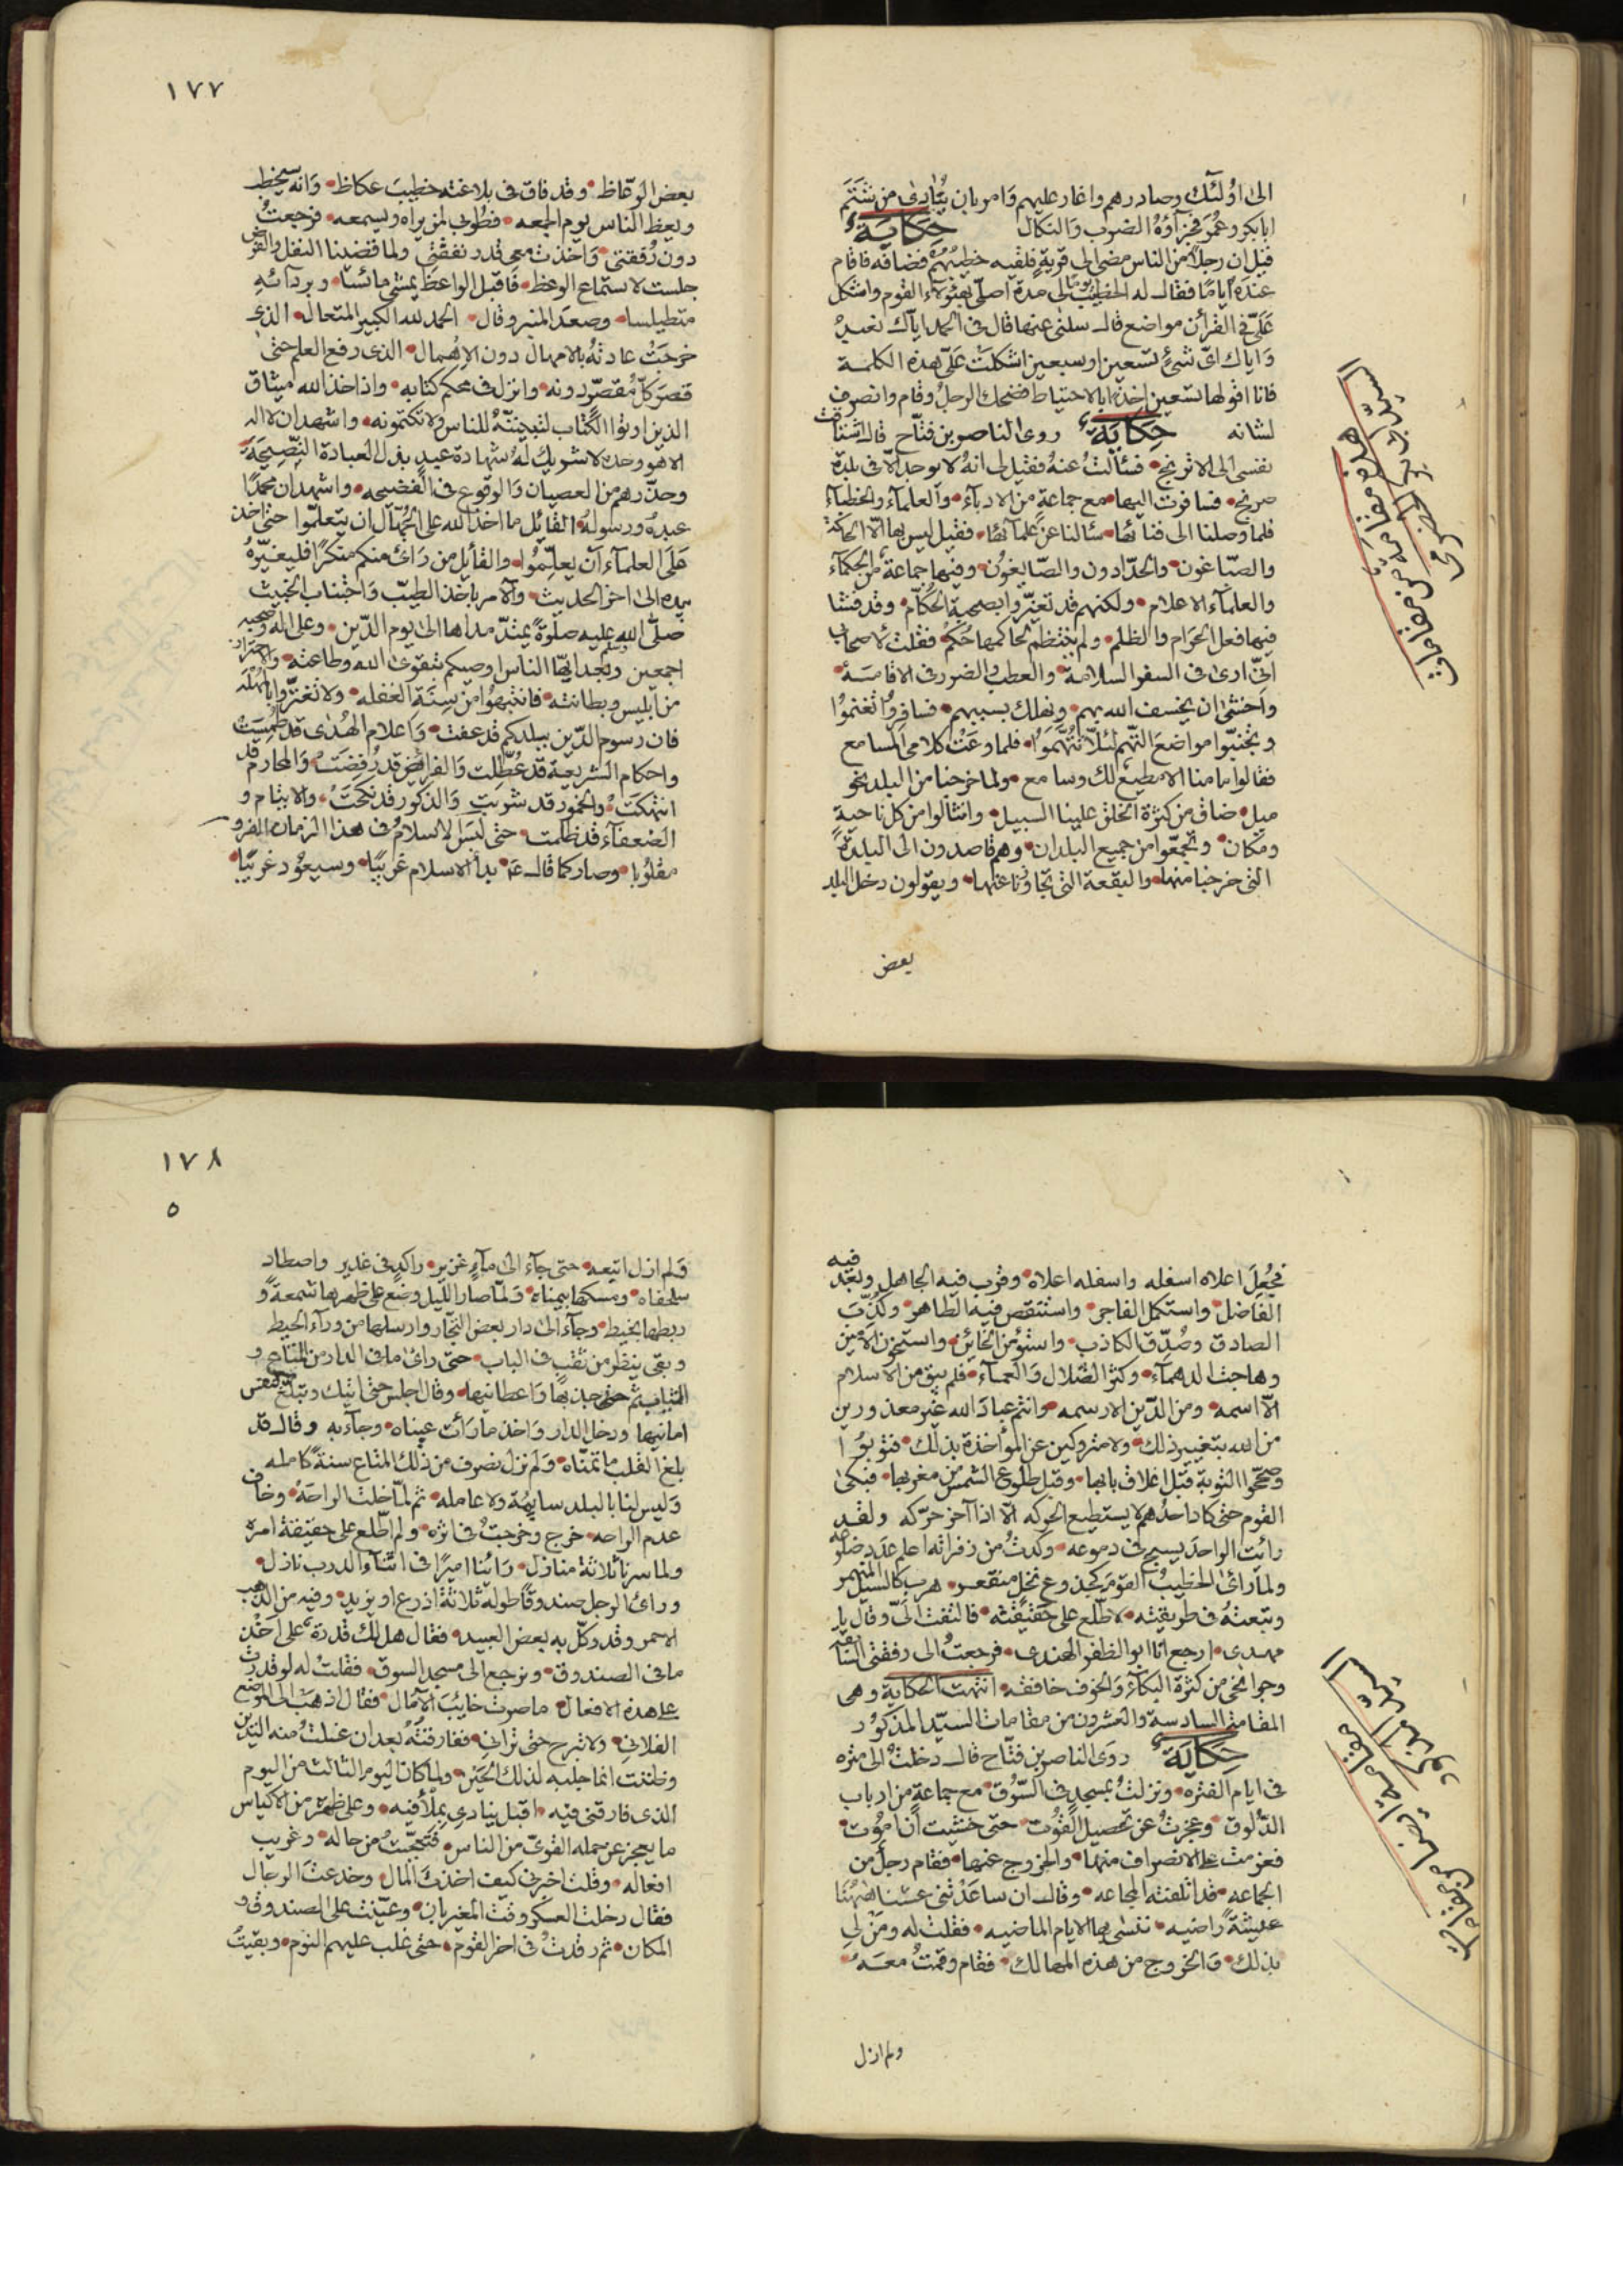 الى اولئك وصادرهم واغار عليهم وامر بان ينادى من شتم
ابا بكر وعمر فجزآؤه الضرب والنكال حكاية
قيل ان رجلا من الناس مضى الى قرية فلقيه خطيبهم فضافه فاقام
عنده اياما فقال له الخطيب يوما لى مدة اصلى بهؤلاء القوم واشكل
علىّ فى القرأن مواضع قال سلنى عنها قال فى الحمد اياك نعبد
واياك اىّ شئ تسعين او سبعين اشكلت علىّ هذه الكلمة
فانا اقولها تسعين اخذا بالاحتياط فضحك الرجل وقام وانصرف
لشانه حكاية روى الناصر بن فتّاح قال اشتاقت
نفسى الى الاترنج فسألت عنه فقيل لى انه لا يوجد الا فى بلدة
صرنج فسافرت اليها مع جماعة من الادبآء والعلمآء والخطبآء
فلما وصلنا الى فنائها سئالنا عن علمآئها فقيل ليس بها الا الحاكة
والصبّاغون والحدّادون والصّايغون وفيها جماعة من الحكمآء
والعلمآء الاعلام ولكنهم قد تعيّروا بصحبة الحكّام وقد فشا
فيها فعل الحرام والظلم ولم ينتظم لحاكمها حكم فقلت لاصحابى
انّى ارى فى السفر السلامة والعطب والضرر فى الاقامة
واخشى ان يخسف الله بهم ونهلك بسببهم فسافروا تغنموا
وتجنبّوا مواضع التّهم لئلا تتهموا فلما وعت كلامى المسامع
فقالوا ما منا الا مطيع لك وسامع ولما خرجنا من البلد نحو
ميل ضاق من كثرة الخلق علينا السبيل وانثالوا من كل ناحية
ومكان وتجمّعوا من جميع البلدان وهم قاصدون الى البلدة
التى خرجنا منها والبقعة التى تجاوزنا عنها ويقولون دخل البلد
بعض
هذه مقامة من مقامات
السيّد ابى بكر الحضرمى
١٧٧
بعض الوعّاظ وقد فاق فى بلاغته خطيب عكاظ وانه سيخطب
ويعظ الناس يوم الجمعه فطوبى لمن يراه ويسمعه فرجعت
دون رفقتى واخذت معى قدر نفقتى ولما قضينا النفل والفرض
جلست لاستماع الوعظ فاقبل الواعظ يمشى مائسا وبردآئه
متطيلسا وصعد المنبر وقال الحمد لله الكبير المتعال الذى
خرجت عادته بالامهال دون الاهمال الذى رفع العلم حتى
قصر كلّ مقصّر دونه وانزل فى محكم كتابه واذا خذ الله ميثاق
الذين اوتوا الكتاب لتبيننّه للناس ولا تكتمونه واشهد ان لا اله
الا هو وحده لا شريك له شهادة عبد بذل لعباده النّصيحة
وحذّرهم من العصيان والوقوع فى الفضيحه واشهد ان محمدا
عبده ورسوله القائل ما اخذ الله على الجهّال ان يتعلّموا حتى اخذ
على العلمآء ان يعلّموا والقأيل من رأى منكم منكرا فليغيّره
بيده الى اخر الحديث والآمر باخذ الطيّب واجتناب الخبيث
صلّى الله عليه صلوة يمتدّ مداها الى يوم الدّين وعلى اله وصحبه
اجمعين وبعد ايّها الناس اوصيكم بتقوى الله وطاعته والاحتراز
من ابليس وبطانته فانتبهوا من سنة الغفله ولا تغترّوا بالمهله
فان رسوم الدّين ببلدكم قد عفت واعلام الهدى قد طمست
واحكام الشريعة قد عطّلت والفرائض قد رفضت والمحارم قد
انتهكت والخمور قد شربت والذكور قد نكحت والايتام و
الضعفآء قد ظلمت حتى لبس الاسلام فى هذا الزمان الفرو
مقلوبا وصار كما قال عم بدأ الاسلام غريبا وسيعود غريبا
فجعل اعلاه اسفله واسفله اعلاه وقرب فيه الجاهل وبعد فيه
الفاضل واستكمل الفاجر واستنقص فيه الطاهر وكذّب
الصادق وصدّق الكاذب واستؤمن الخائن واستخون الامين
وهاجت الدهمآء وكثر الضلال والعمآء فلم يبق من الاسلام
الّا اسمه ومن الدّين الا رسمه وانتم عباد الله غير معذورين
من الله بتغيير ذلك ولا متروكين عن المؤاخذة بذلك فتوبوا
وصحّحوا التوبة قبل اغلاق بابها وقبل طلوع الشمس من مغربها فبكى
القوم حتى كاد احدهم لا يستطيع الحركه الا اذا آخر حرّكه ولقد
رائت الواحد يسبح فى دموعه وكدت من زفراته اعلم عدد ضلوعه
ولما رائ الخطيب القوم كجذوع نخل منقعر هرب كالسيل المنهمر
وتبعته فى طريقته لاطّلع على حقيقته فالتفت الىّ وقال يا
مهدى ارجع انا ابو الظفر الهندى فرجعت الى رفقتى
وجوانحى من كثرة البكآء والخوف خافقه انتهت الحكاية وهى
المقامة السادسة والعشرون من مقامات السيّد المذكور
حكاية روى الناصر بن فتّاح قال دخلت الى مثره
فى ايام الفتره ونزلت بمسجد فى السّوق مع جماعة من ارباب
الدّلوق وعجزت عن تحصيل القوت حتى خشيت ان اموت
فعزمت على الانصراف منها والخروج عنها فقام رجل من
الجماعه قد اتلفته المجاعه وقال ان ساعدتنى عشنا ههنا
عيشة راضيه ننسى بها الايام الماضيه فقلت له ومن لى
بذلك والخروج من هذه المهالك فقام وقمت معه
ولم ازل
مقامة ايضا من مقامات
السيد المذكور
١٧٨
٥
ولم ازل اتبعه حتى جآء الى مآء غزير راكد فى غدير واصطاد
سلحفاه ومسكها بيمناه ولما صار الليل وضع على ظهرها شمعة و
ربطها بخيط وجآء الى دار بعض التجّار وارسلها من ورآء الحيط
وبقى ينظر من ثقب فى الباب حتى رائ ما فى الدار من المتاع و
الثياب ثم جذبها واعطانيها وقال اجلس حتى اتيك وتبلغ النفس
امانيها ودخل الدار واخذ ما رأت عيناه وجآء به وقال قد
بلغ القلب ما تمنّاه ولم نزل نصرف من ذلك المتاع سنة كامله
وليس لنا بالبلد سايمة ولا عامله ثم لما خلت الراحة وخاف
عدم الراحه خرج وخرجت فى اثره ولم اطّلع على حقيقة امره
ولما سرنا ثلاثة منازل رائنا اميرا فى اثنآء الدرب نازل
ورائ الرجل صندوقا طوله ثلاثة اذرع او يزيد وفيه من الذهب
الاحمر وقد وكّل به بعض العبيد فقال هل لك قدرة على اخذ
ما فى الصندوق ونرجع الى مسجد السوق فقلت له لو قدرت
على هذه الافعال ما صرت خايب الآمال فقال اذهب الى الموضع
الفلانى ولا تبرح حتى ترانى ففارقته بعد ان غسلت منه اليدين
وظننت انما جلبه لذلك الحين ولما كان اليوم الثالث من اليوم
الذى فارقنى فيه اقبل ينادى بملأ فيه وعلى ظهره من الاكياس
ما يعجز عن حمله القوىّ من الناس فتعجّبت من حاله وغريب
افعاله وقلت اخبرنى كيف اخذت المال وخدعت الرجال
فقال دخلت العسكر وقت المغيربان وعيّنت على الصندوق و
المكان ثم رقدت فى اخر القوم حتى غلب عليهم النوم وبقيت